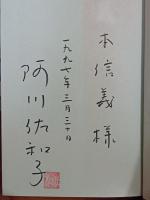 本信義様
一九九七年三月三十日
阿川佐和子